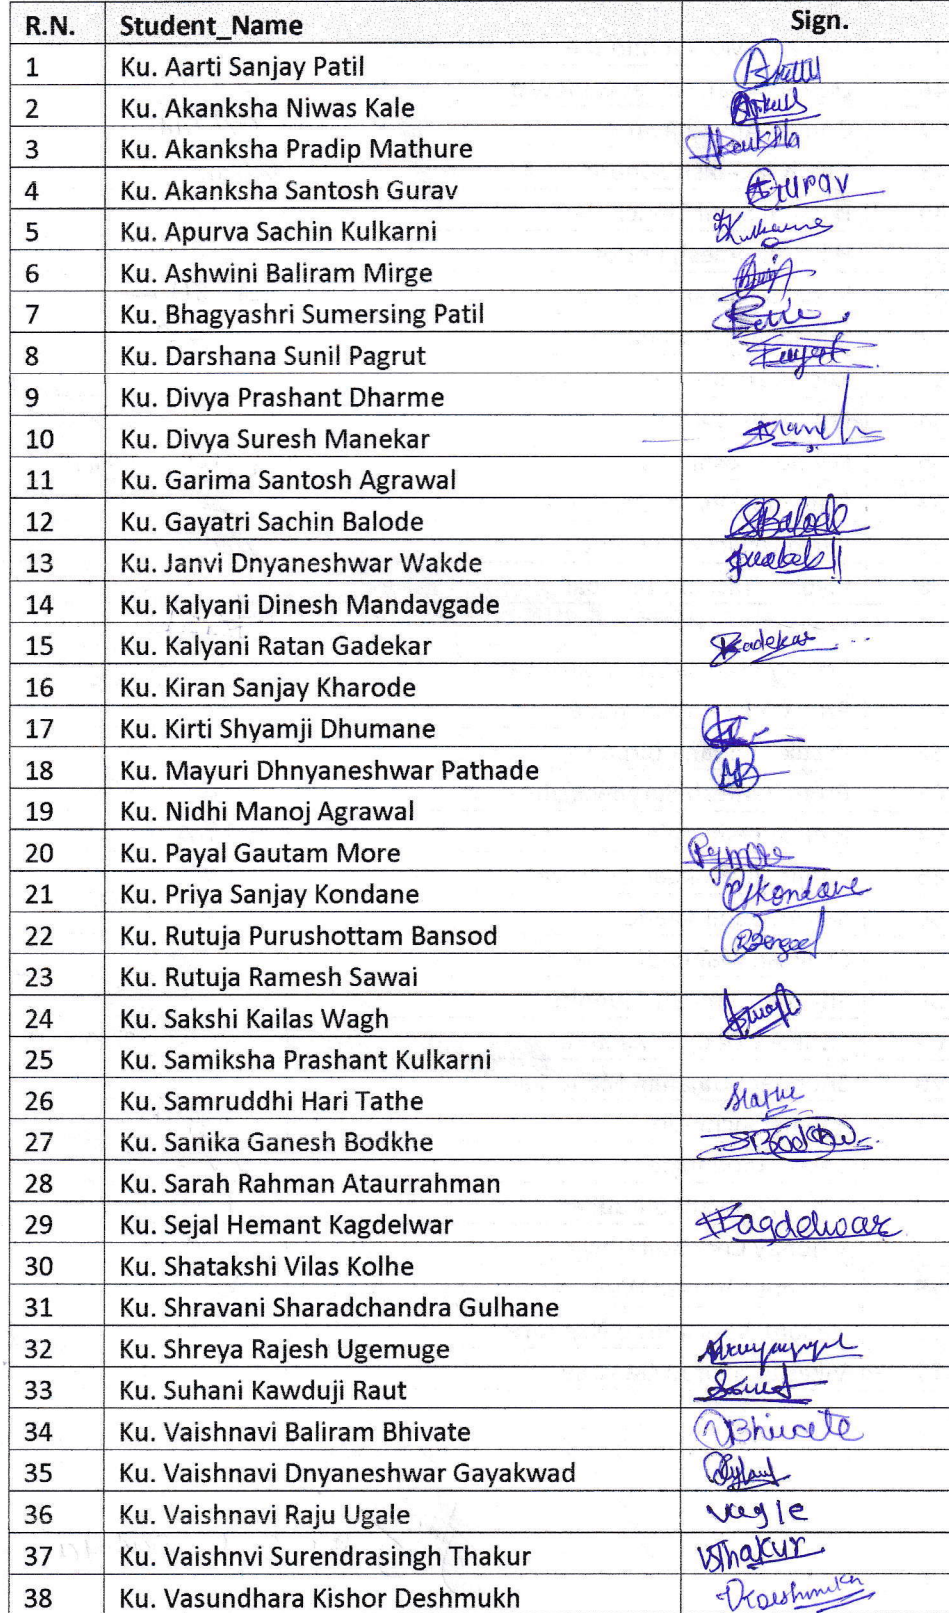 R.N. Student_Name Sign.
1 Ku. Aarti Sanjay Patil
2 Ku. Akanksha Niwas Kale
3 Ku. Akanksha Pradip Mathure Akanksha
4 Ku. Akanksha Santosh Gurav Gurav
5 Ku. Apurva Sachin Kulkarni
6 Ku. Ashwini Baliram Mirge
7 Ku. Bhagyashri Sumersing Patil
8 Ku. Darshana Sunil Pagrut
9 Ku. Divya Prashant Dharme
10 Ku. Divya Suresh Manekar
11 Ku. Garima Santosh Agrawal
12 Ku. Gayatri Sachin Balode Balode
13 Ku. Janvi Dnyaneshwar Wakde
14 Ku. Kalyani Dinesh Mandavgade
15 Ku. Kalyani Ratan Gadekar
16 Ku. Kiran Sanjay Kharode
17 Ku. Kirti Shyamji Dhumane
18 Ku. Mayuri Dhnyaneshwar Pathade
19 Ku. Nidhi Manoj Agrawal
20 Ku. Payal Gautam More
21 Ku. Priya Sanjay Kondane
22 Ku. Rutuja Purushottam Bansod
23 Ku. Rutuja Ramesh Sawai
24 Ku. Sakshi Kailas Wagh
25 Ku. Samiksha Prashant Kulkarni
26 Ku. Samruddhi Hari Tathe
27 Ku. Sanika Ganesh Bodkhe
28 Ku. Sarah Rahman Ataurrahman
29 Ku. Sejal Hemant Kagdelwar
30 Ku. Shatakshi Vilas Kolhe
31 Ku. Shravani Sharadchandra Gulhane
32 Ku. Shreya Rajesh Ugemuge
33 Ku. Suhani Kawduji Raut
34 Ku. Vaishnavi Baliram Bhivate
35 Ku. Vaishnavi Dnyaneshwar Gayakwad
36 Ku. Vaishnavi Raju Ugale
37 Ku. Vaishnvi Surendrasingh Thakur VSThakur
38 Ku. Vasundhara Kishor Deshmukh